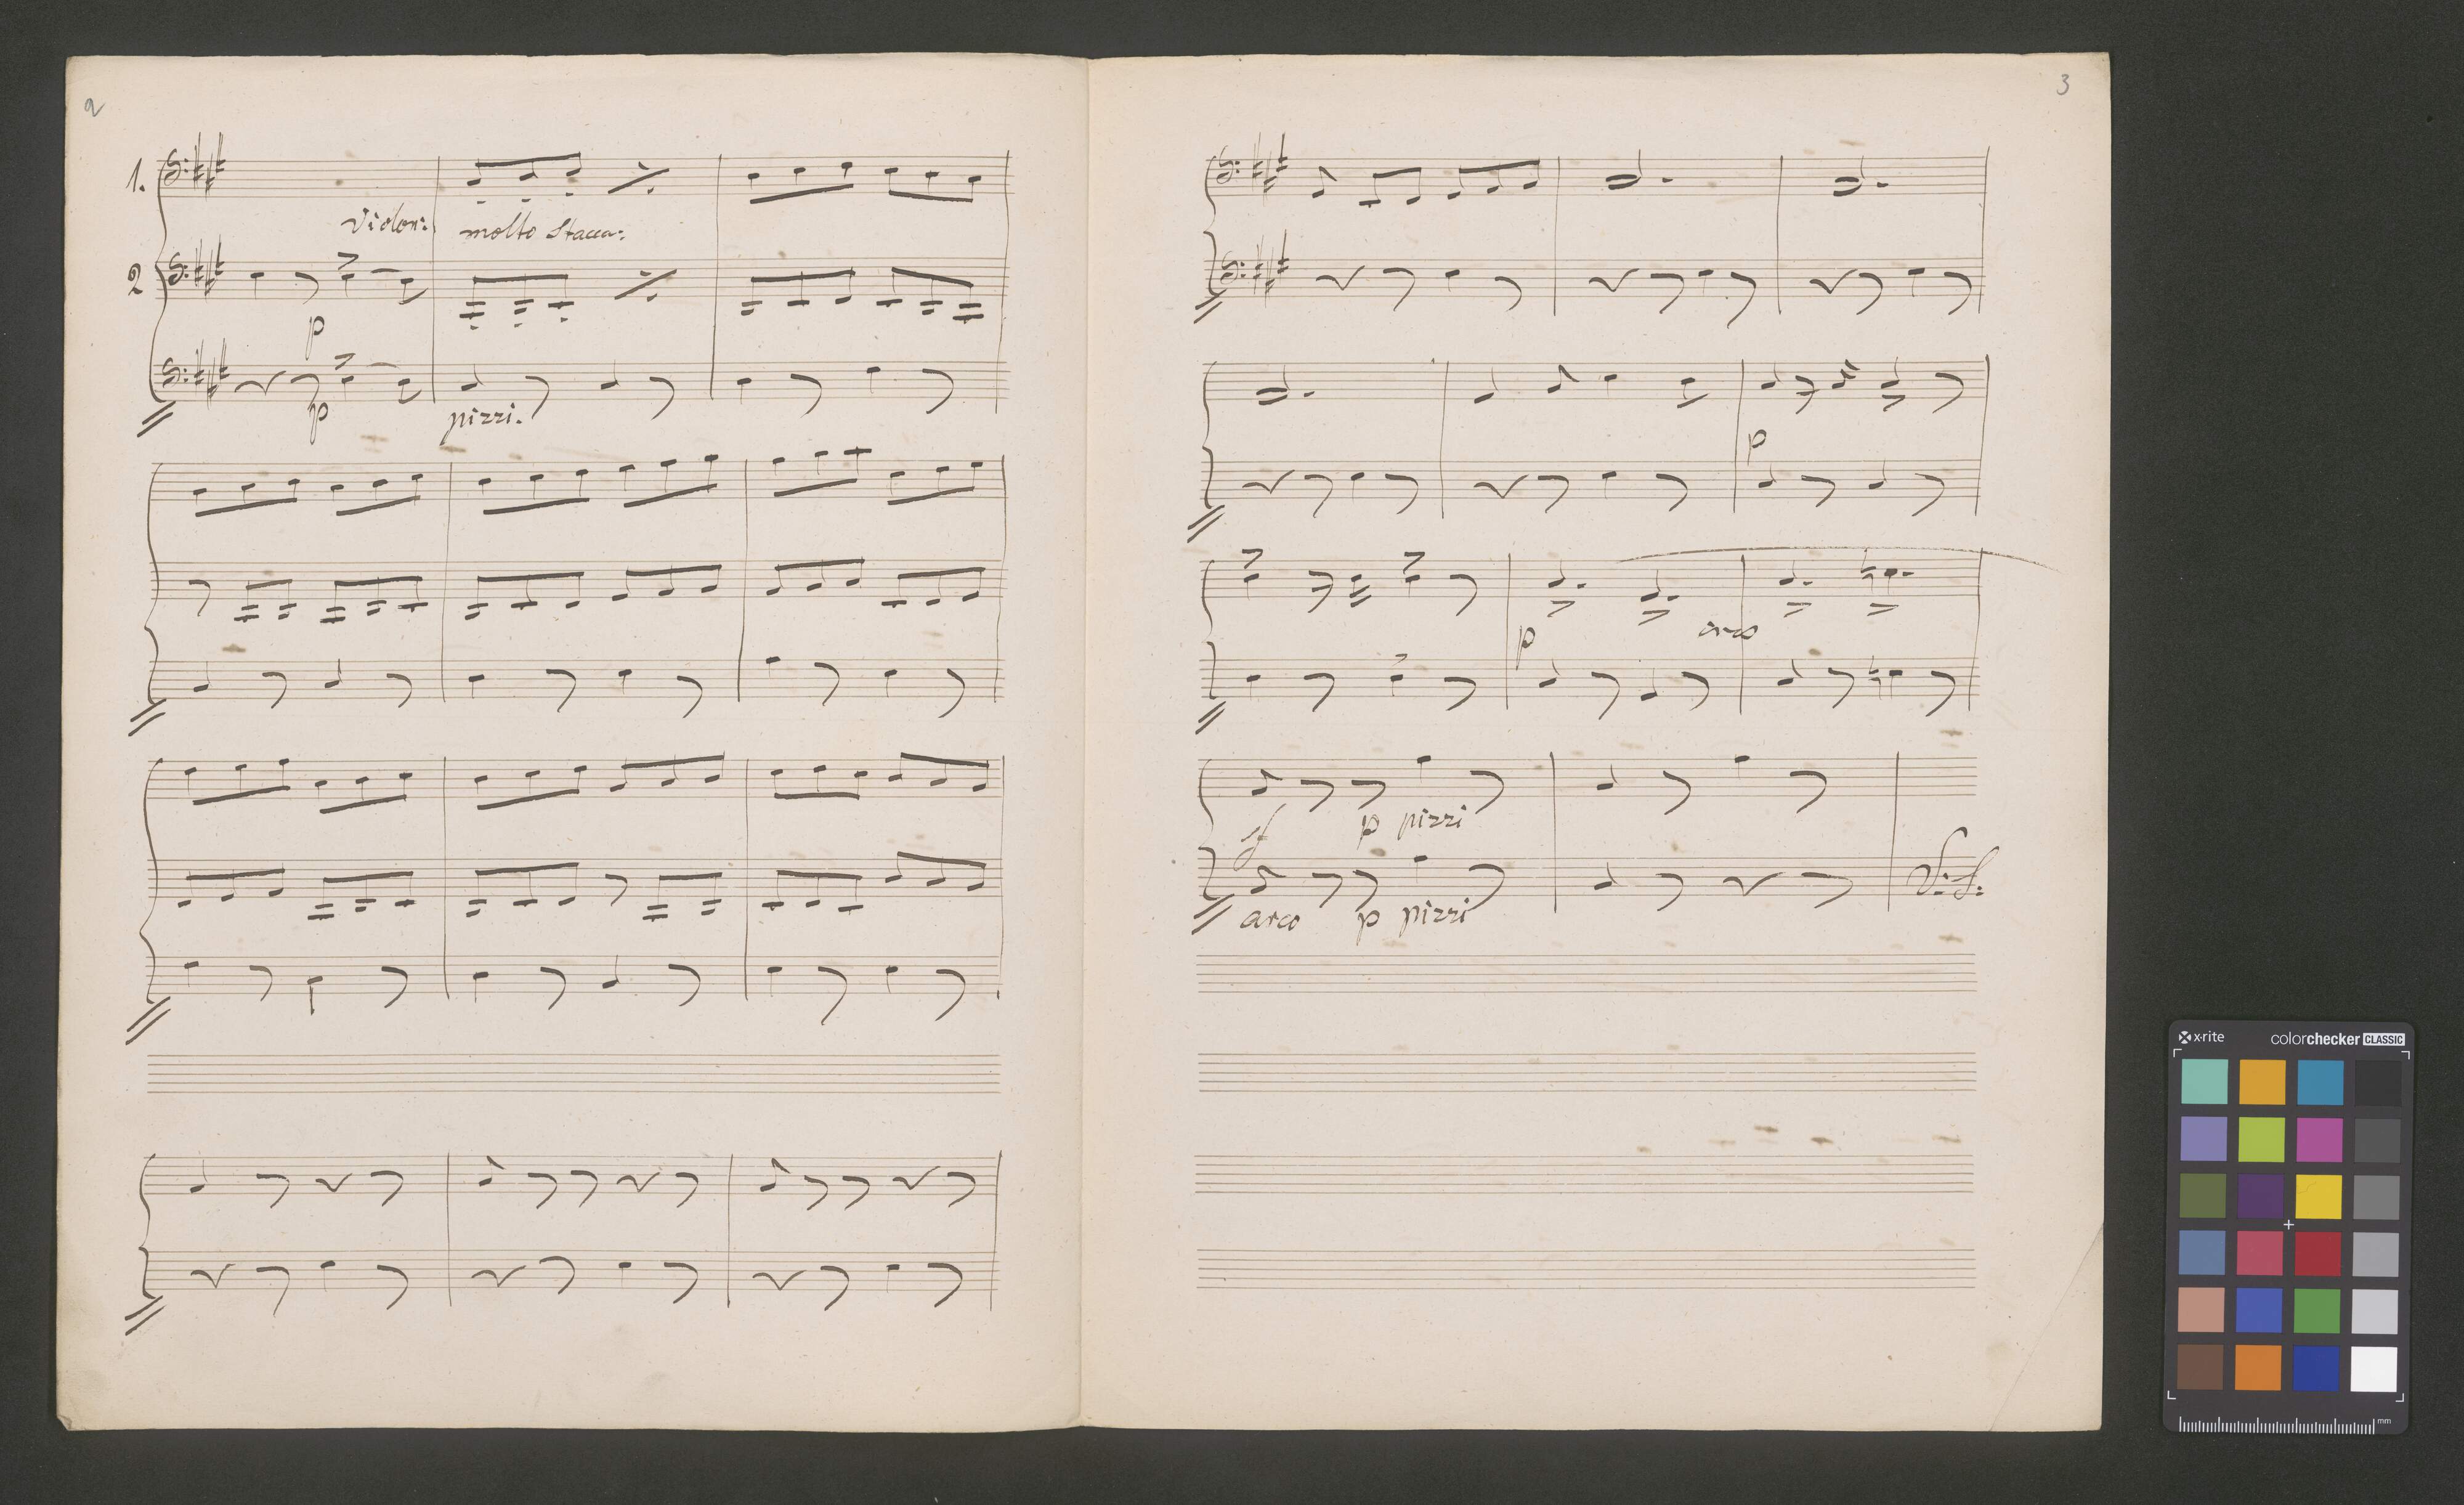 2
1.
Violon: molto Stacca:
2
p
p pizzi.
3
p
p arco
sf p pizzi
V.S:
arco p pizzi
x-rite colorchecker CLASSIC
mm